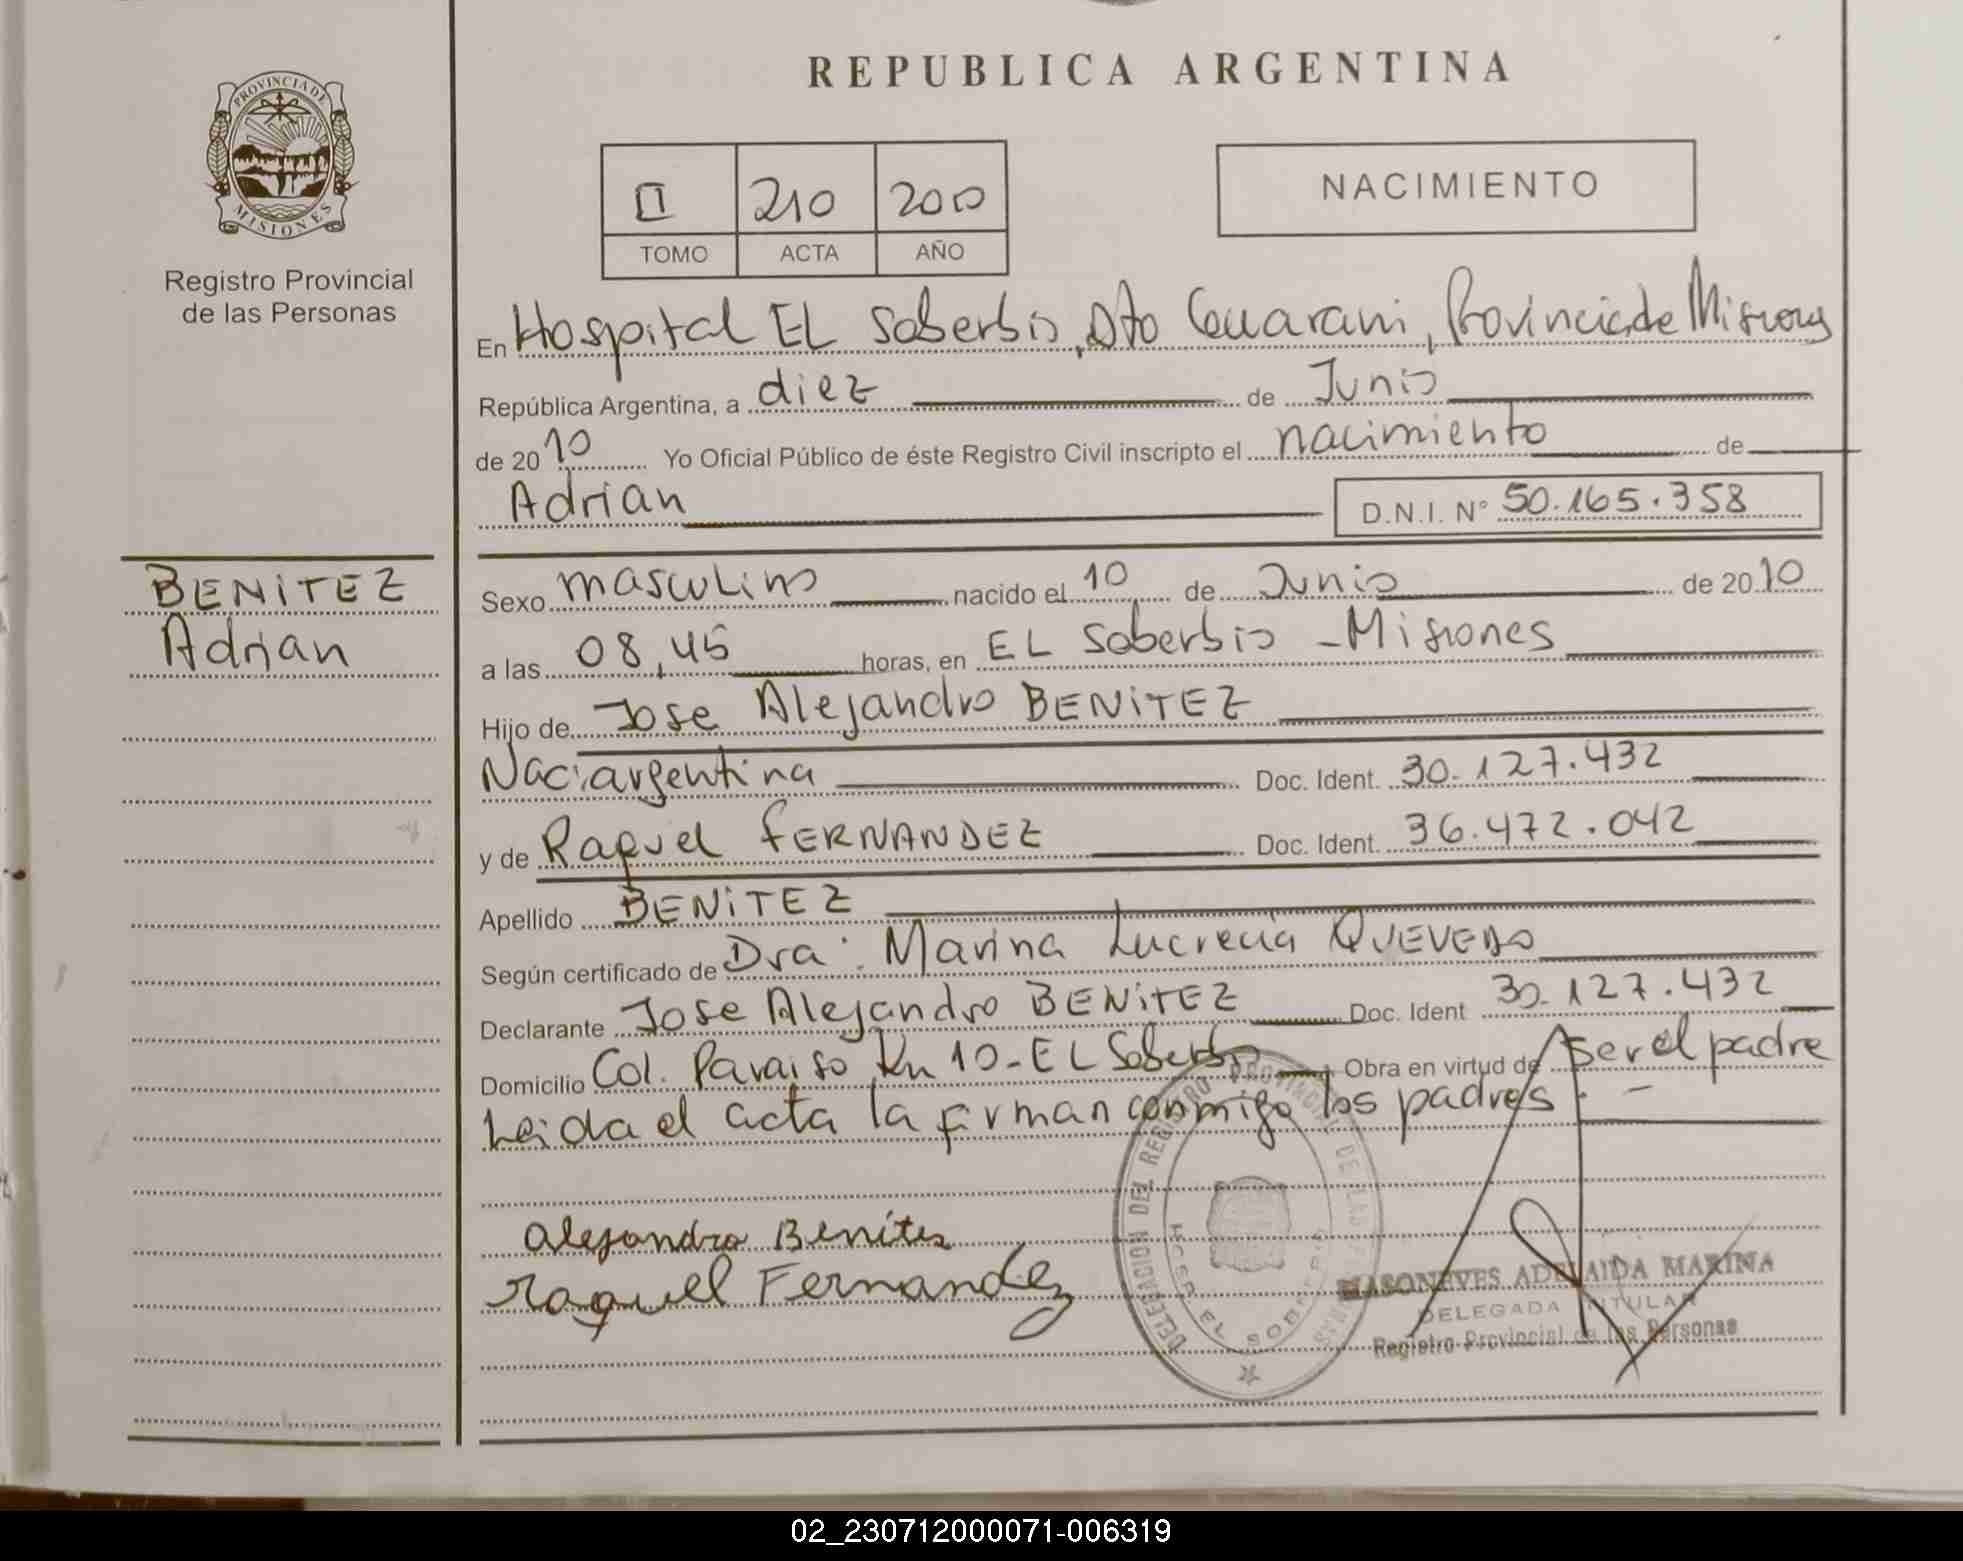 REPUBLICA ARGENTINA
PROVINCIA DE
MISIONES
Registro Provincial
de las Personas
II 210 2010
TOMO ACTA AÑO
NACIMIENTO
En Hospital EL Soberbio, Dto Guarani, Provincia de Misiones
República Argentina, a diez de Junio
de 2010 Yo Oficial Público de éste Registro Civil inscripto el nacimiento de
Adrian D.N.I. N° 50.165.358
BENITEZ
Adrian
Sexo masculino nacido el 10 de Junio de 2010
a las 08,45 horas, en EL Soberbio - Misiones
Hijo de Jose Alejandro BENITEZ
Nac: argentina Doc. Ident. 30.127.432
y de Raquel FERNANDEZ Doc. Ident. 36.472.042
Apellido BENITEZ
Según certificado de Dra: Marina Lucrecia QUEVEDO
Declarante Jose Alejandro BENITEZ Doc. Ident 30.127.432
Domicilio Col. Paraiso Km 10 - EL Soberbio Obra en virtud de ser el padre
Leida el acta la firman conmigo los padres. -
Alejandro Benites
Raquel Fernandez
DELEGACION DEL REGISTRO PROVINCIAL DE LAS PERSONAS
EL SOBERBIO
MASONEVES ADELAIDA MARINA
DELEGADA TITULAR
Registro Provincial de las Personas
02_230712000071-006319